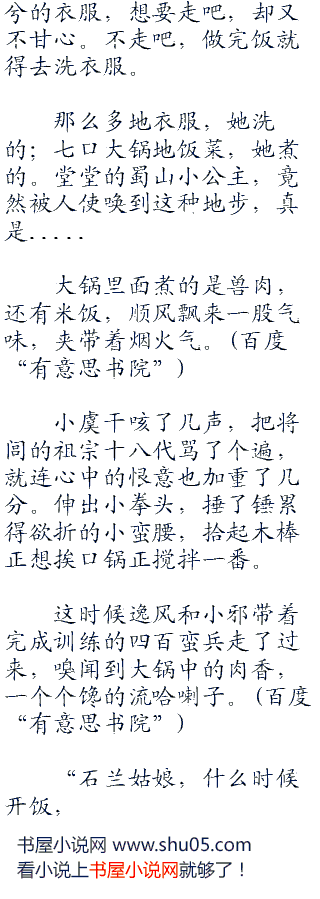 兮的衣服，想要走吧，却又
不甘心。不走吧，做完饭就
得去洗衣服。
那么多地衣服，她洗
的；七口大锅地饭菜，她煮
的。堂堂的蜀山小公主，竟
然被人使唤到这种地步，真
是.....
大锅里面煮的是兽肉，
还有米饭，顺风飘来一股气
味，夹带着烟火气。(百度
“有意思书院”)
小虞干咳了几声，把将
闾的祖宗十八代骂了个遍，
就连心中的恨意也加重了几
分。伸出小拳头，捶了锤累
得欲折的小蛮腰，拾起木棒
正想挨口锅正搅拌一番。
这时候逸风和小邪带着
完成训练的四百蛮兵走了过
来，嗅闻到大锅中的肉香，
一个个馋的流哈喇子。(百度
“有意思书院”)
“石兰姑娘，什么时候
开饭，
书屋小说网 www.shu05.com
看小说上书屋小说网就够了！